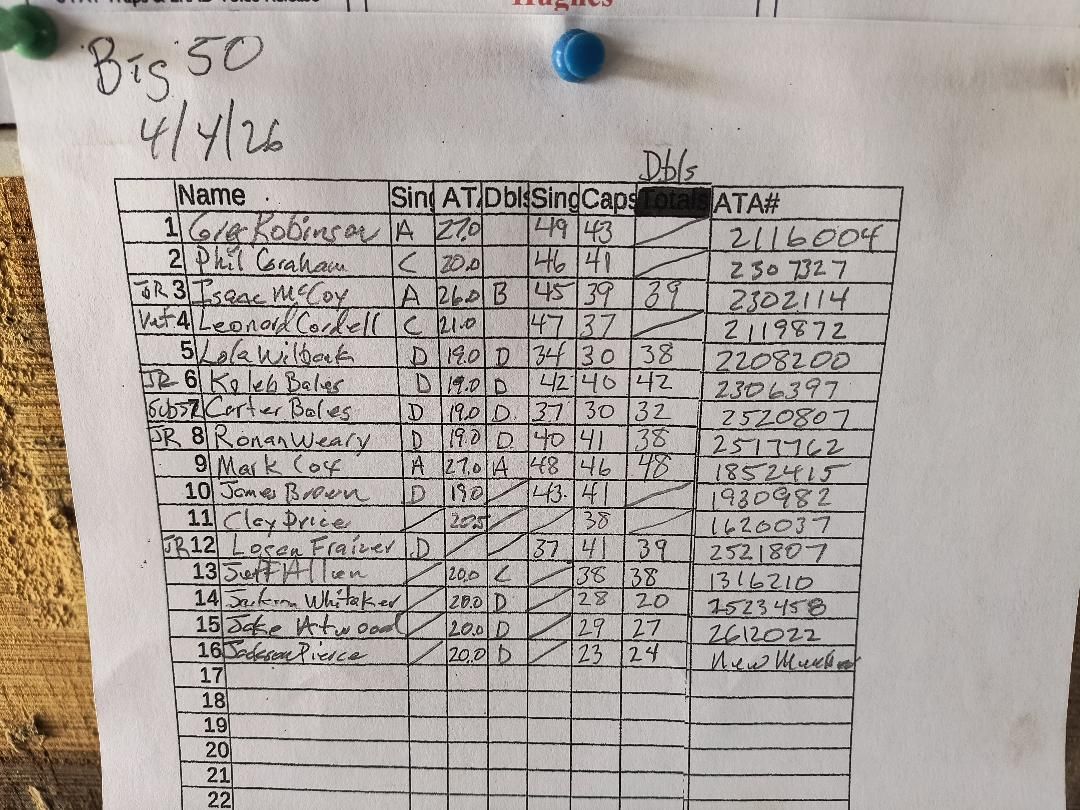 Hughes
Big 50
4/4/26
Dbls
Name Sing AT Dbls Sing Caps Totals ATA#
1 Robinson A 27.0 49 43 2116004
2 Phil Graham C 20.0 46 41 2307327
JR 3 Isaac McCoy A 26.0 B 45 39 39 2302114
Vet 4 Leonard Cordell C 21.0 47 37 2119872
5 Lola D 19.0 D 34 30 38 2208200
JR 6 Kaleb Bales D 19.0 D 42 40 42 2306397
7 Carter Bales D 19.0 D. 37 30 32 2520807
JR 8 Ronan Weary D 19.0 D 40 41 38 2517762
9 Mark Cox A 27.0 A 48 46 48 1852415
10 James Brown D 19.0 43. 41 1930982
11 Clay Price 20.5 38 1620037
JR 12 Logan Fraizer D 37 41 39 2521807
13 Jeff Allen 20.0 C 38 38 1316210
14 Whitaker 20.0 D 28 20 2523458
15 Jake Atwood 20.0 D 29 27 2612022
16 Jackson Pierce 20.0 D 23 24 New
17
18
19
20
21
22